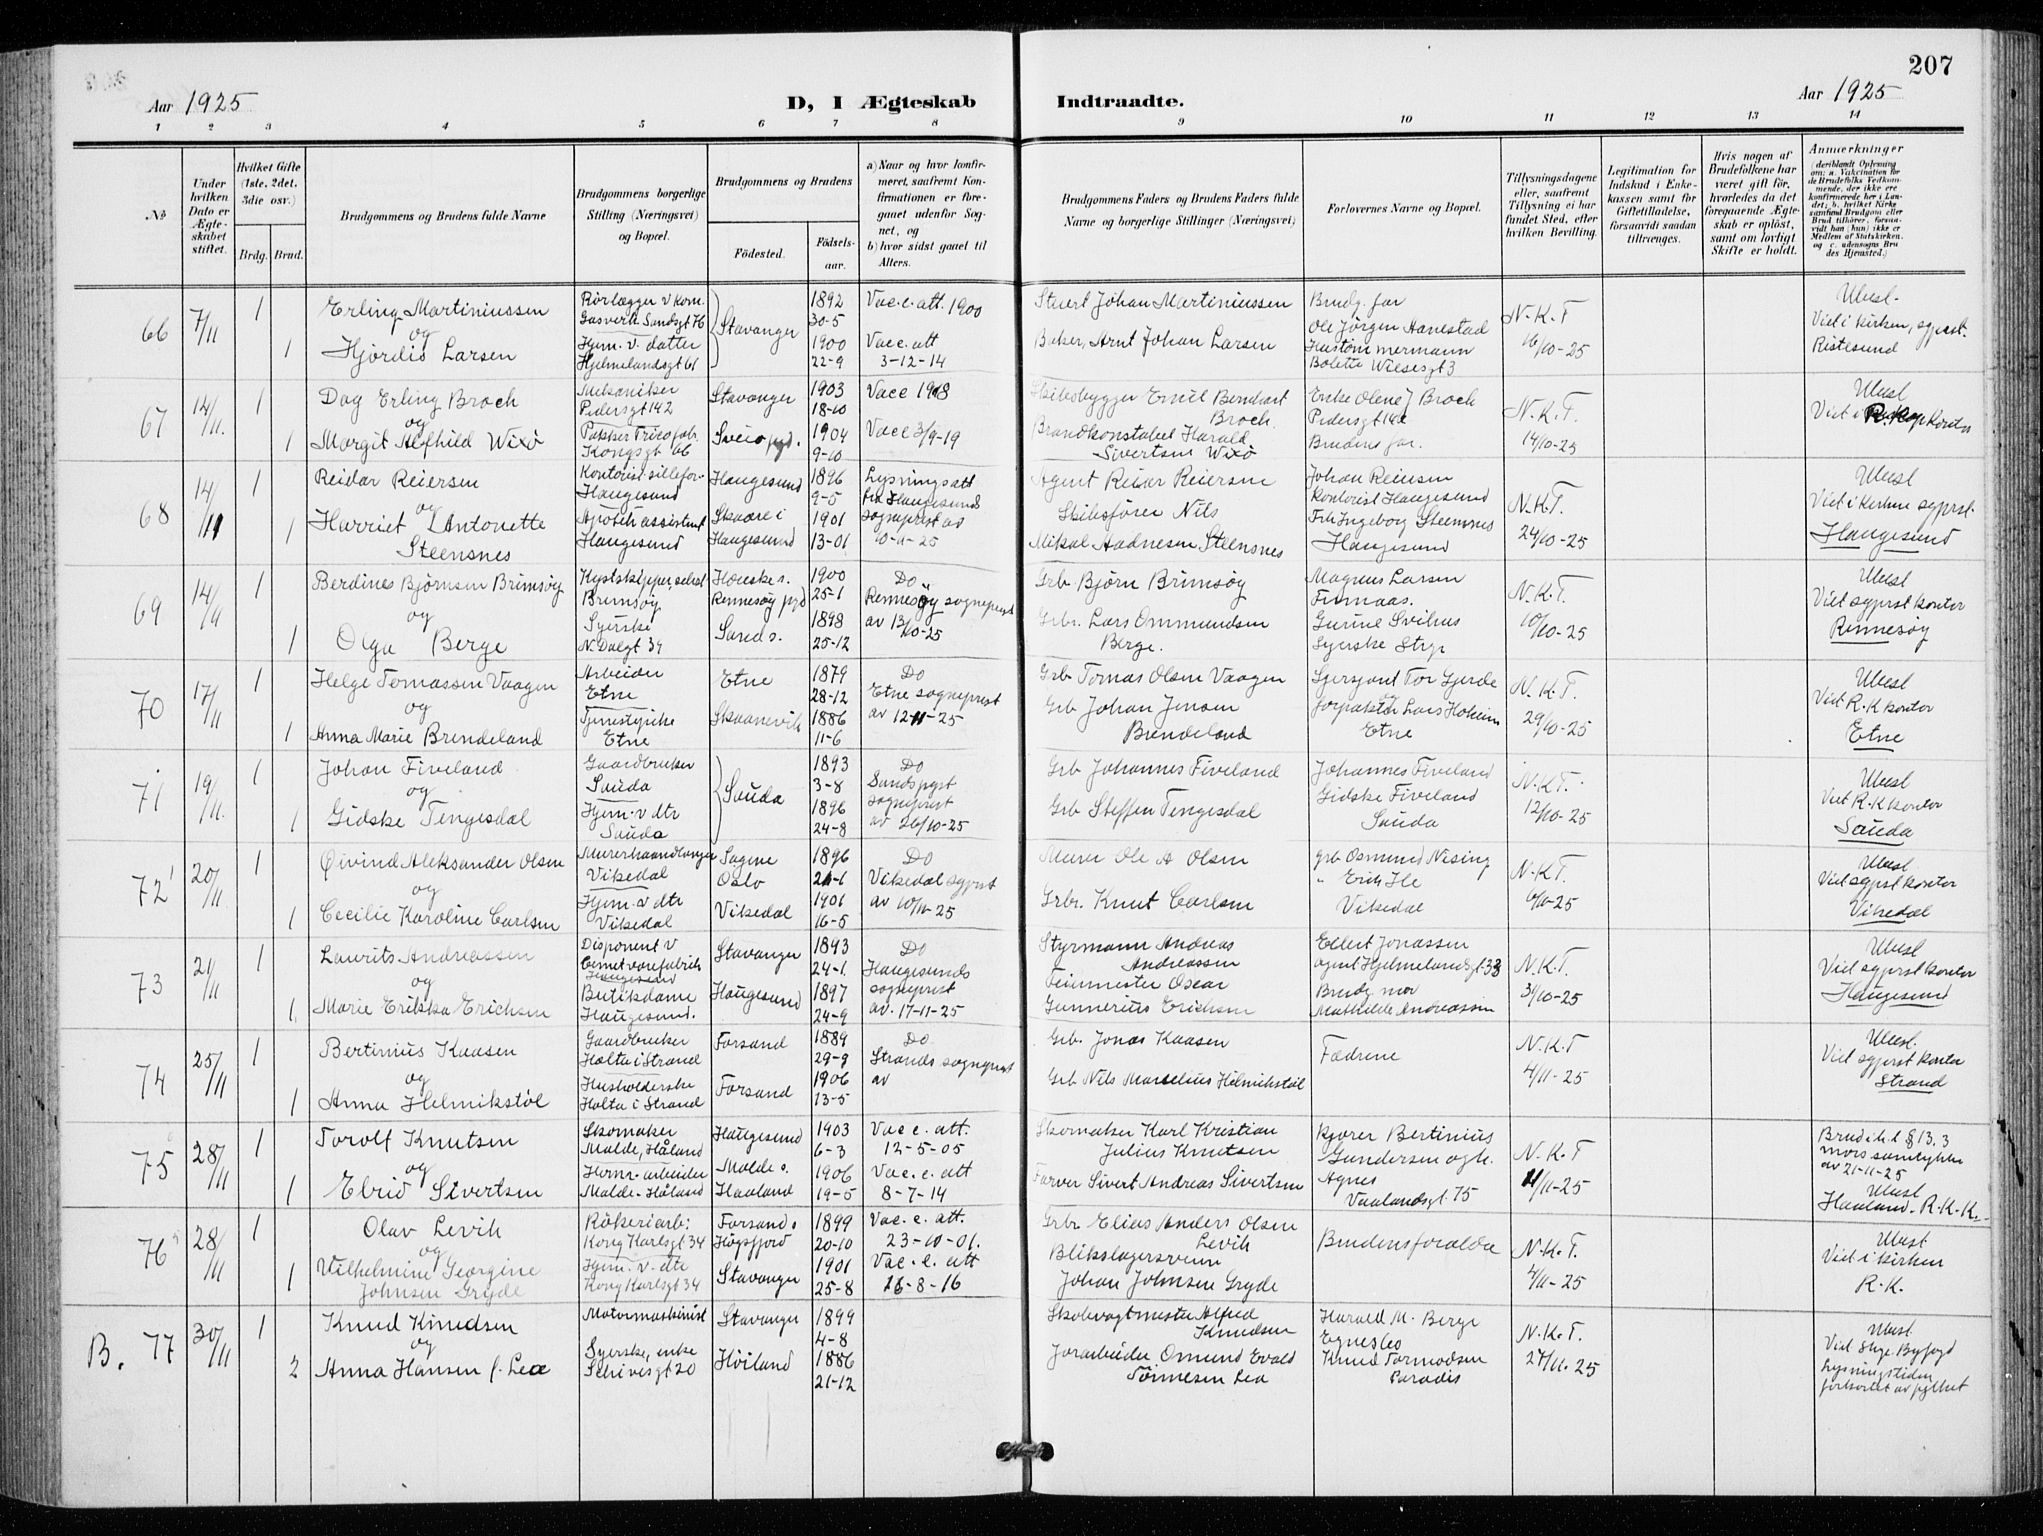 207
Aar 1925
D, I Ægteskab
Indtraadte.
Aar 1925
1 2 3 4 5 6 7 8 9 10 11 12 13 14
No
Under hvilken Dato er Ægteskabet stiftet.
Hvilket Gifte (1ste, 2det, 3die osv.)
Brdg. Brud.
Brudgommens og Brudens fulde Navne
Brudgommens borgerlige Stilling (Næringsvei) og Bopæl.
Brudgommens og Brudens
Födested.
Födselsaar.
a) Naar og hvor konfirmeret, saafremt Konfirmationen er foregaaet udenfor Sognet, og
b) hvor sidst gaaet til Alters.
Brudgommens Faders og Brudens Faders fulde Navne og borgerlige Stillinger (Næringsvei)
Forlovernes Navne og Bopæl.
Tillysningsdagene eller, saafremt Tillysning ei har fundet Sted, efter hvilken Bevilling.
Legitimation for Indskud i Enkekassen samt for Giftetilladelse, forsaavidt saadan tiltrænges.
Hvis nogen af Brudefolkene har været gift før, hvorledes da det foregaaende Ægteskab er oplöst, samt om lovligt Skifte er holdt.
Anmerkninger
(deriblandt Oplysning om: a. Vakcination for de Brudefolks Vedkommende, der ikke ere konfirmerede her i Landet; b. hvilket Kirkesamfund Brudgom eller Brud tilhörer, forsaavidt han (hun) ikke er Medlem af Statskirken, og c. udensogns Brudes Hjemsted.)
66 7/11 1
Erling Martiniussen
og
1 Hjørdis Larsen
Rörlægger v kom.
Gasverk Sandsgt 76
Hjem. v. datter
Hjelmelandsgt 61
Stavanger
1892
30-5
1900
22-9
Vac. e. att. 1900
Vac e. att
3-12-14
Stuert Johan Martiniussen
Baker, Arnt Johan Larsen
Brudg. far
Ole Jörgen Hanestad
Bolette Wilsesgt 3
N.K.T
16/10-25
Ubesl.
Viet i kirken, sgprst.
Ristesund
67 14/11. 1
Dag Erling Broch
og
1 Margit Alfhild Wixö
Mekaniker
Pedersgt 142
Pakker Tricofabr.
Kongsgt 66
Stavanger
Sveio pgd.
1903
18-10
1904
9-10
Vace 1918
Vace 3/9-19
Skibsbygger Emil Bernhart
Broch.
Brandkonstabel Harald
Sivertsen Wixö
Enke Olene J Broch
Pedersgt 142
Brudens far.
N.K.T.
14/10-25
Ubesl
Viet i R.K. kontor
68 14/11 1
Reidar Reiersen
og
1 Harriet Antonette
Steensnes
Haugesund
Apotek assistent
Haugesund
Haugesund
Skaare i
Haugesund
1896
9-5
1901
13-01
Lysningsatt
fra Haugesunds
sogneprest av
10-11-25
Agent Reidar Reiersen
Skibsfører Nils
Mikal Aadnesen Steensnes
Johan Reiersen
kontorist Haugesund
Frk Ingeborg Steensnes
Haugesund
N.K.T.
24/10-25
Ubesl
Viet i kirken sgprst.
Haugesund
69 14/11 1
Berdines Bjørnsen Brimsøy
og
1 Olga Berge
Kystskipper, selvst
Brimsøy
Syerske
N. Dalgt 39
Hæuske s.
Rennesøy pgd
Sand s.
1900
25-1
1898
25-12
Do
Rennesöy sogneprest
av 12/10-25
Grb. Bjørn Brimsøy
Grbr. Lars Ommundsen
Berge.
Magnus Larsen
Gurine Svihus
Syerske Stvgr
N.K.T.
10/10-25
Ubesl
Viet sgprst kontor
Rennesøy
70 17/11 1
Helge Tomassen Vaagen
og
1 Anna Marie Brendeland
Arbeider
Etne
Tjenestepike
Etne
Etne
Skaanevik
1879
28-12
1886
11-6
Do
Etne sogneprest
av 12-11-25
Grb Tomas Olsen Vaagen
Grb Johan Jensen
Brendeland
Sjersjant Tor Gjerde
og
Forpakter Lars Hoheim
Etne
N.K.T.
29/10-25
Ubesl
Viet R.K kontor
Etne
71 19/11. 1
Johan Fiveland
og
1 Gidske Tengesdal
Gaardbruker
Sauda
Hjem. v dtr
Sauda
Sauda
1893
3-8
1896
24-8
Do
Sands pgst
sogneprest
av 26/10-25
Grb Johannes Fiveland
Grb Steffen Tengesdal
Johannes Fiveland
Gidske Fiveland
Sauda
N.K.T.
12/10-25
Ubesl
Viet R.K kontor
Sauda
72 20/11. 1
Øivind Aleksander Olsen
og
1 Cecilie Karoline Carlsen
Murerhaandlanger
Vikedal
Hjem. v dtr
Vikedal
Sagene
Oslo
Vikedal
1896
21-1
1901
16-5
Do
Vikedal sgprst
av 10/11-25
Murer Ole A Olsen
Grbr. Knut Carlsen
Grb Osmund Nising
" Erik Ile
Vikedal
N.K.T.
6/11-25
Ubesl
Viet sgprst kontor
Vikedal
73 21/11 1
Laurits Andreassen
og
1 Marie Eriksa Erichsen
Disponent v
Cementvarefabrik
Haugesund
Butikdame
Haugesund.
Stavanger
Haugesund
1893
24-1.
1897
24-9
Do
Haugesunds
sogneprest
av. 17-11-25
Styrmann Andreas
Andreassen
Feiermester Oscar
Gunnerius Erichsen
Eilert Jonassen
agent Hjelmelandsgt 33
Brudg. mor
Mathilde Andreassen
N.K.T.
31/10-25
Ubesl
Viet sgprst kontor
Haugesund
74 25/11 1
Bertinius Kaasen
og
1 Anna Helmikstöl
Gaardbruker
Holta i Strand
Husholderske
Holta i Strand
Forsand
Forsand
1889
29-9
1906
13-5
Do
Strands sogneprest
av
Grb. Jonas Kaasen
Grb Nils Marselius Helmikstöl
Fædrene
N.K.T
4/11-25
Ubesl.
Viet sgprst kontor
Strand
75 28/11 1
Torolf Knutsen
og
1 Ebrid Sivertsen
Skomaker
Malde, Håland
Herm-arbeider
Malde-Håland
Haugesund
Malde s.
Haaland
1903
6-3
1906
19-5
Vac e. att.
12-5-05
Vac. e. att
8-7-14
Skomaker Karl Kristian
Julius Knutsen
Farver Sivert Andreas Sivertsen
Kjører Bertinius
Gundersen og h.
Agnes
Vaalandsgt. 75
N.K.T
11/11-25
Brud i h. t § 13.3
mors samtykke
av 21-11-25
Ubesl
Haaland. R.K.K.
76 28/11 1
Olav Levik
og
1 Vilhelmine Georgine
Johnsen Gryde
Rökeriarb:
Kong Karlsgt 34
Hjem. v. dtr
Kong Karlsgt 34
Forsand.
Høgsfjord
Stavanger
1899
20-10
1901
25-8
Vac. e. att.
23-10-01.
Vac. e. att
26-8-16
Grbr Elias Anders Olsen
Levik
Blikslagersvenn
Johan Johnsen Gryde
Brudens foreldre
N.K.T.
4/11-25
Ubesl
Viet i kirken
R.K.
B. 77 30/11 1
Knud Knudsen
og
2 Anna Hansen f. Lea
Motormaskinist
Syerske, enke
Schivesgt 20
Stavanger
Høiland
1899
4-8
1886
21-12
Skolevagtmester Alfred
Knudsen
Jordarbeider Osmund Evald
Tönnesen Lea
Harald M. Berge
Knud Tormodsen
Paradis
N.K.T.
27/11.25
Ubesl.
Viet Stvgr. Byfogd
Lysningstiden
forkortet av fylket